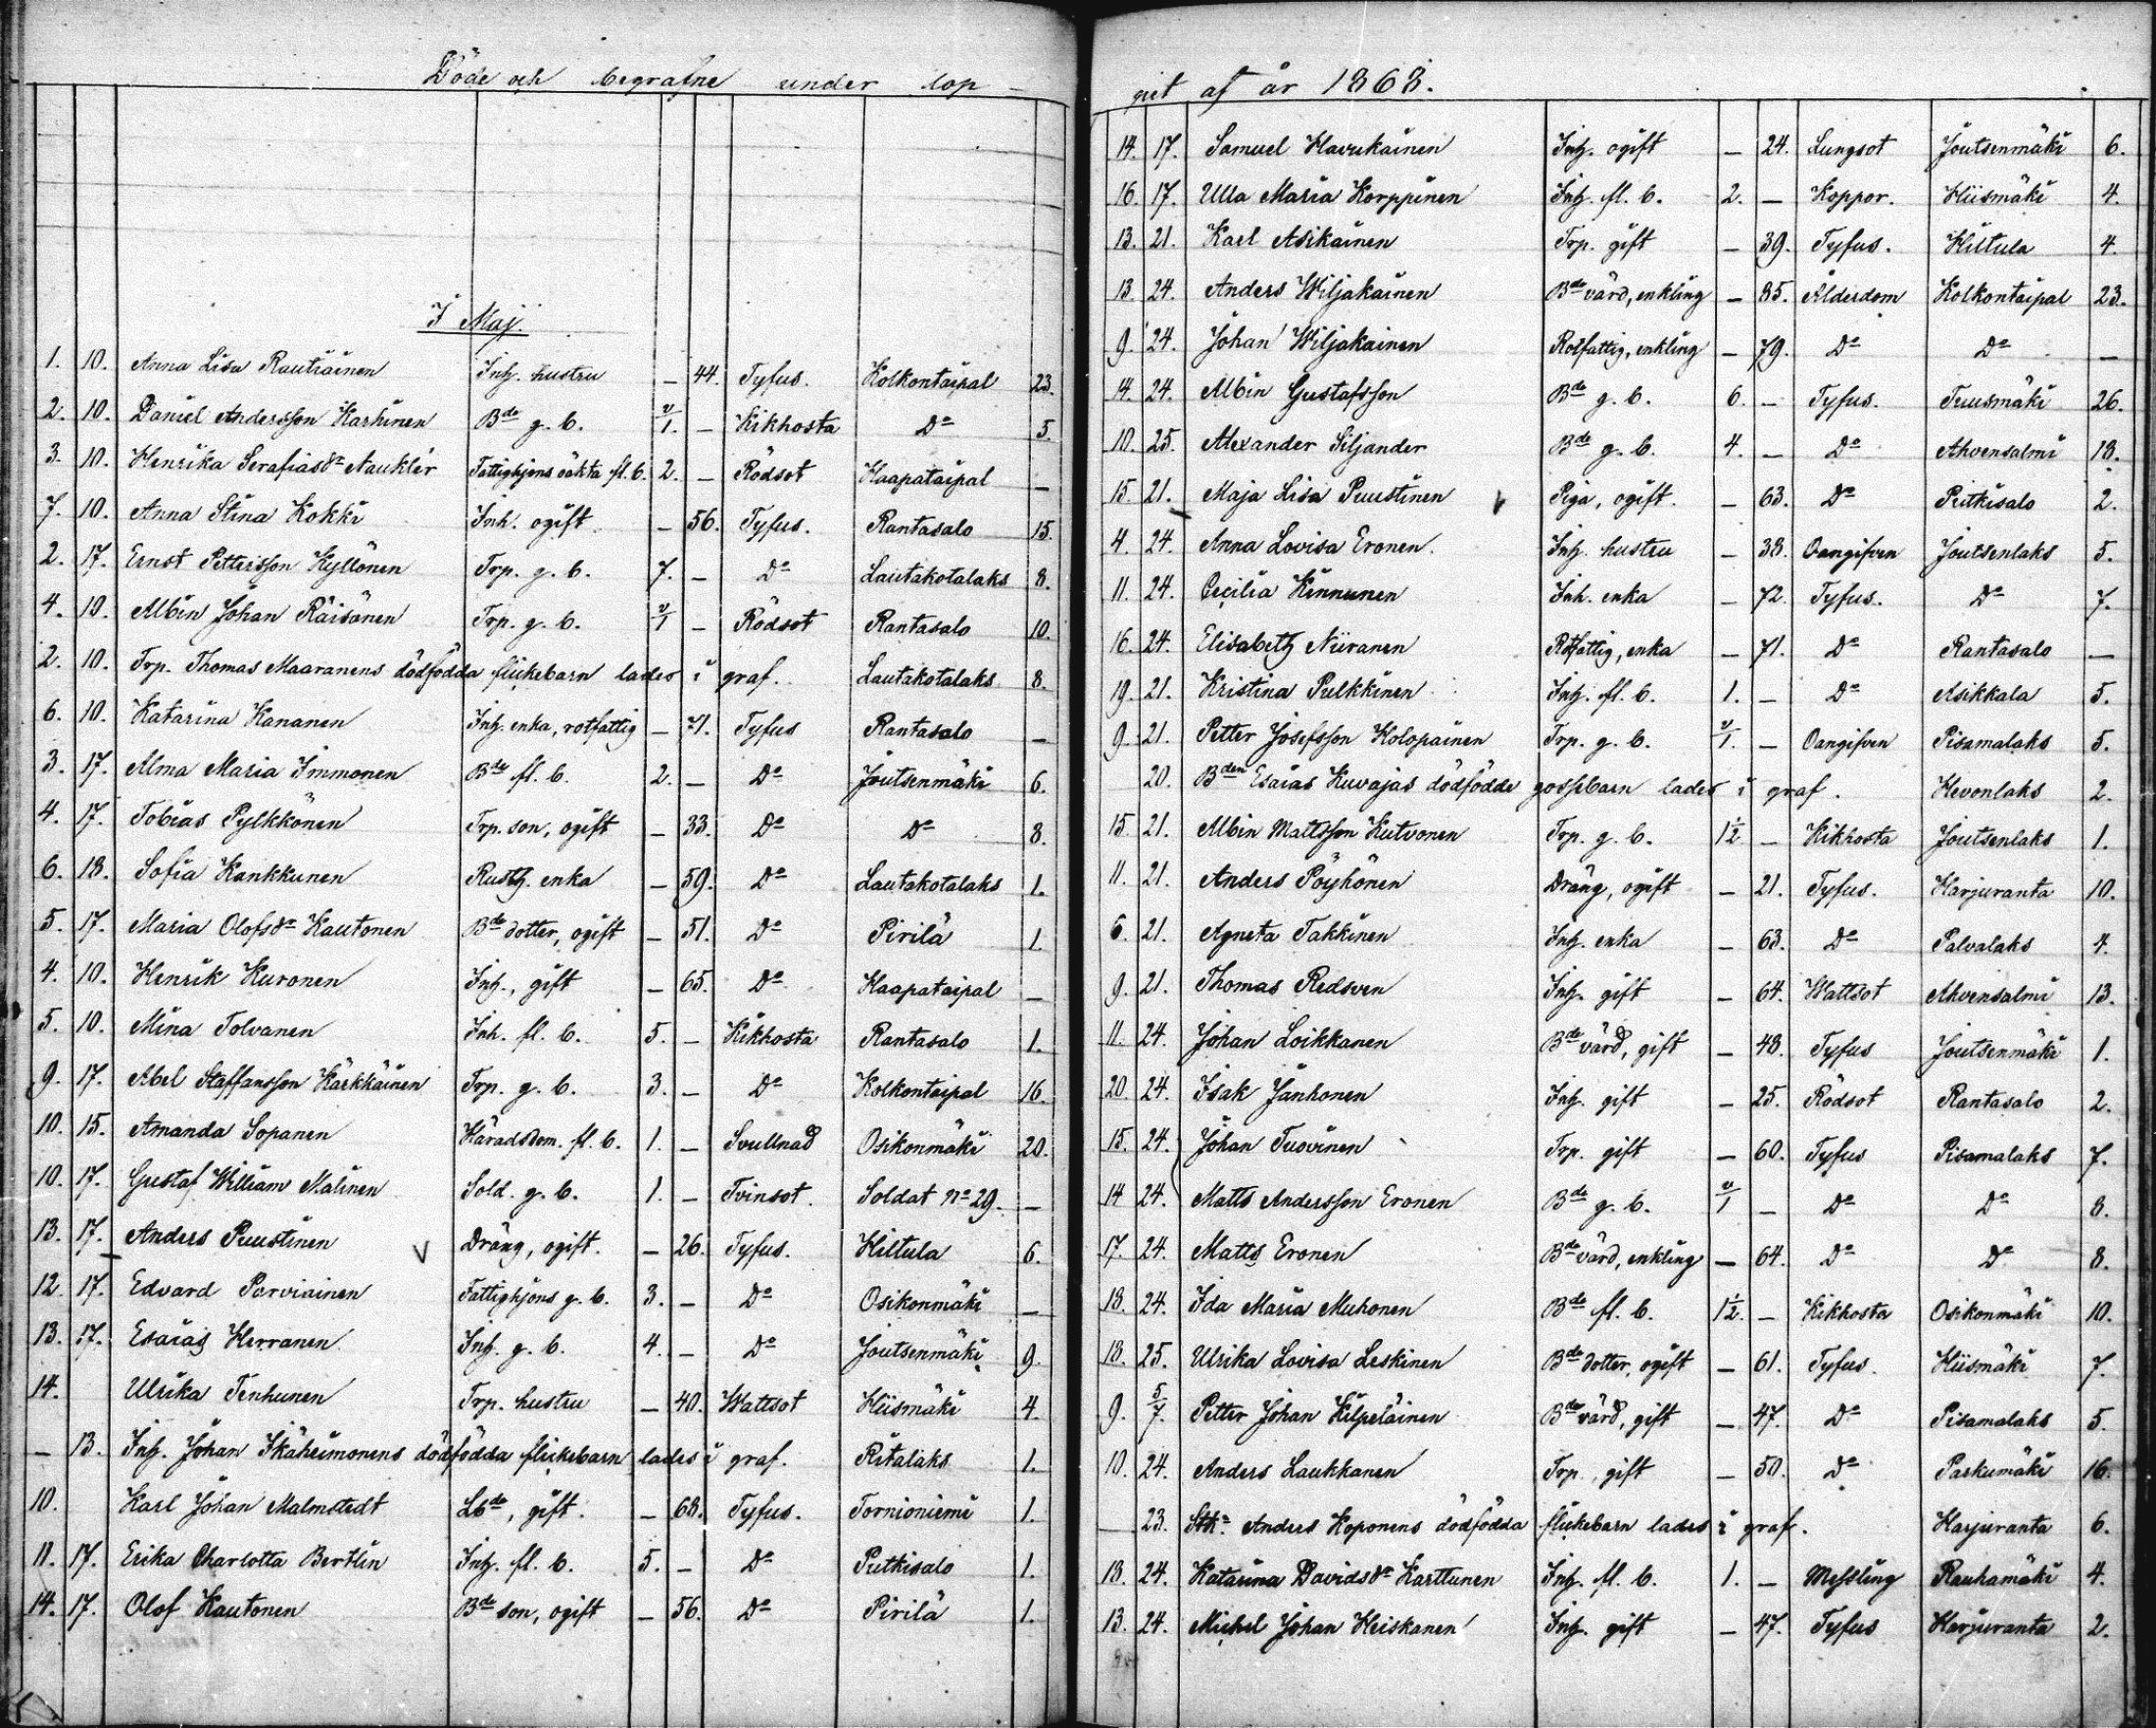 Döde och begrafne under lop-
I Maj.
1. 10. Anna Lisa Rautiainen Inh. hustru — 44. Tyfus. Kolkontaipal 23.
2. 10. Daniel Andersson Karhinen Bde g. b. v/1. — Kikhosta Do 5.
3. 10. Henrika Serafiasdr Nauklér Fattighjons oäkta fl. b. 2. — Rödsot Haapataipal —
7. 10. Anna Stina Kokki Inh. ogift — 56. Tyfus. Rantasalo 15.
2. 17. Ernst Pettersson Kyllönen Trp. g. b. 7. — Do Lautakotalaks 8.
4. 10. Albin Johan Räisänen Trp. g. b. v/1 — Rödsot Rantasalo 10.
2. 10. Trp. Thomas Maaranens dödfödda flickebarn lades i graf. Lautakotalaks 8.
6. 10. Katarina Kananen Inh. enka, rotfattig — 71. Tyfus Rantasalo —
3. 17. Alma Maria Immonen Bde fl. b. 2. — Do Joutsenmäki 6.
4. 17. Tobias Pylkkönen Trp. son, ogift — 33. Do Do 8.
6. 18. Sofia Kankkunen Rusth. enka — 59. Do Lautakotalaks 1.
5. 17. Maria Olofsdr Kautonen Bde dotter, ogift — 51. Do Pirilä 1.
4. 10. Henrik Kuronen Inh., gift — 65. Do Haapataipal —
5. 10. Mina Tolvanen Inh. fl. b. 5. — Kikhosta Rantasalo 1.
9. 17. Abel Staffansson Kärkkäinen Trp. g. b. 3. — Do Kolkontaipal 16.
10. 15. Amanda Sopanen Häradsdom. fl. b. 1. — Svullnad Osikonmäki 20.
10. 17. Gustaf William Malinen Sold. g. b. 1. — Tvinsot. Soldat No 29. —
13. 17. Anders Puustinen V Dräng, ogift. — 26. Tyfus. Hiltula 6.
12. 17. Edvard Parviainen Fattighjons g. b. 3. — Do Osikonmäki —
13. 17. Esaias Herranen Inh. g. b. 4. — Do Joutsenmäki 9.
14. Ulrika Tenhunen Trp. hustru — 40. Wattsot Hiismäki 4.
— 13. Inh. Johan Ikäheimonens dödfödda flickebarn lades i graf. Ritalaks 1.
10. Karl Johan Malmstedt Lbde, gift. — 68. Tyfus. Tornioniemi 1.
11. 17. Erika Charlotta Bertlin Inh. fl. b. 5. — Do Putkisalo 1.
14. 17. Olof Kautonen Bde son, ogift — 56. Do Pirilä 1.
pet af år 1868.
14. 17. Samuel Havukainen Inh. ogift — 24. Lungsot Joutsenmäki 6.
16. 17. Ulla Maria Korppinen Inh. fl. b. 2. — Koppor. Hiismäki 4.
13. 21. Karl Asikainen Trp. gift — 39. Tyfus. Hiltula 4.
13. 24. Anders Wiljakainen Bde värd, enkling — 85. Ålderdom Kolkontaipal 23.
9. 24. Johan Wiljakainen Rotfattig, enkling — 79. Do Do —
14. 24. Albin Gustafsson Bde g. b. 6. — Tyfus. Tuusmäki 26.
10. 25. Alexander Siljander Bde g. b. 4. — Do Ahvensalmi 18.
15. 21. Maja Lisa Puustinen V Piga, ogift. — 63. Do Putkisalo 2.
4. 24. Anna Lovisa Eronen. Inh. hustru — 38. Oangifven Joutsenlaks 5.
11. 24. Cecilia Kinnunen Inh. enka — 72. Tyfus. Do 7.
16. 24. Elisabeth Niiranen Rotfattig, enka — 71. Do Rantasalo —
19. 21. Kristina Pulkkinen Inh. fl. b. 1. — Do Asikkala 5.
9. 21. Petter Josefsson Kolopainen Trp. g. b. v/1. — Oangifven Pisamalaks 5.
20. Bden Esaias Kuvajas dödfödde gossebarn lades i graf. Hevonlaks 2.
15. 21. Albin Mattsson Kutvonen Trp. g. b. 1½ — Kikhosta Joutsenlaks 1.
11. 21. Anders Pöyhönen Dräng, ogift — 21. Tyfus. Harjuranta 10.
6. 21. Agneta Takkinen Inh. enka — 63. Do Palvalaks 4.
9. 21. Thomas Redsven Inh. gift — 64. Wattsot Ahvensalmi 13.
11. 24. Johan Loikkanen Bde värd, gift — 48. Tyfus Joutsenmäki 1.
20. 24. Isak Janhonen Inh. gift — 25. Rödsot Rantasalo 2.
15. 24. Johan Tuovinen Trp. gift — 60. Tyfus Pisamalaks 7.
14 24. Matts Andersson Eronen Bde g. b. v/1 — Do Do 8.
17. 24. Matts Eronen Bde värd, enkling — 64. Do Do 8.
18. 24. Ida Maria Muhonen Bde fl. b. 1½. — Kikhosta Osikonmäki 10.
18. 25. Ulrika Lovisa Leskinen Bde dotter, ogift — 61. Tyfus. Hiismäki 7.
9. 5/7. Petter Johan Kilpeläinen Bde värd, gift — 47. Do Pisamalaks 5.
10. 24. Anders Laukkanen Trp. gift — 50. Do Paskumäki 16.
— 23. Anders Koponens dödfödda flickebarn lades i graf. Harjuranta 6.
18. 24. Katarina Davidsdr Karttunen Inh. fl. b. 1. — Messling Rauhamäki 4.
13. 24. Michel Johan Heiskanen Inh. gift — 47. Tyfus Harjuranta 2.